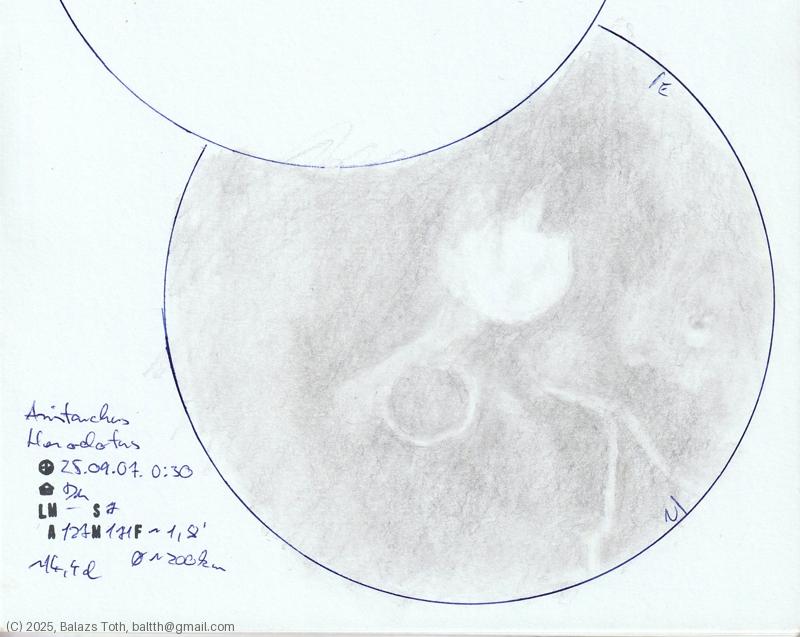 E
Aristarchus
Herodotus
25.09.07. 0:30
LM — S 7
A 127 M 171 F ~ 1,8'
N
~14,4 d Ø ~ 200 km
(C) 2025, Balazs Toth, baltth@gmail.com